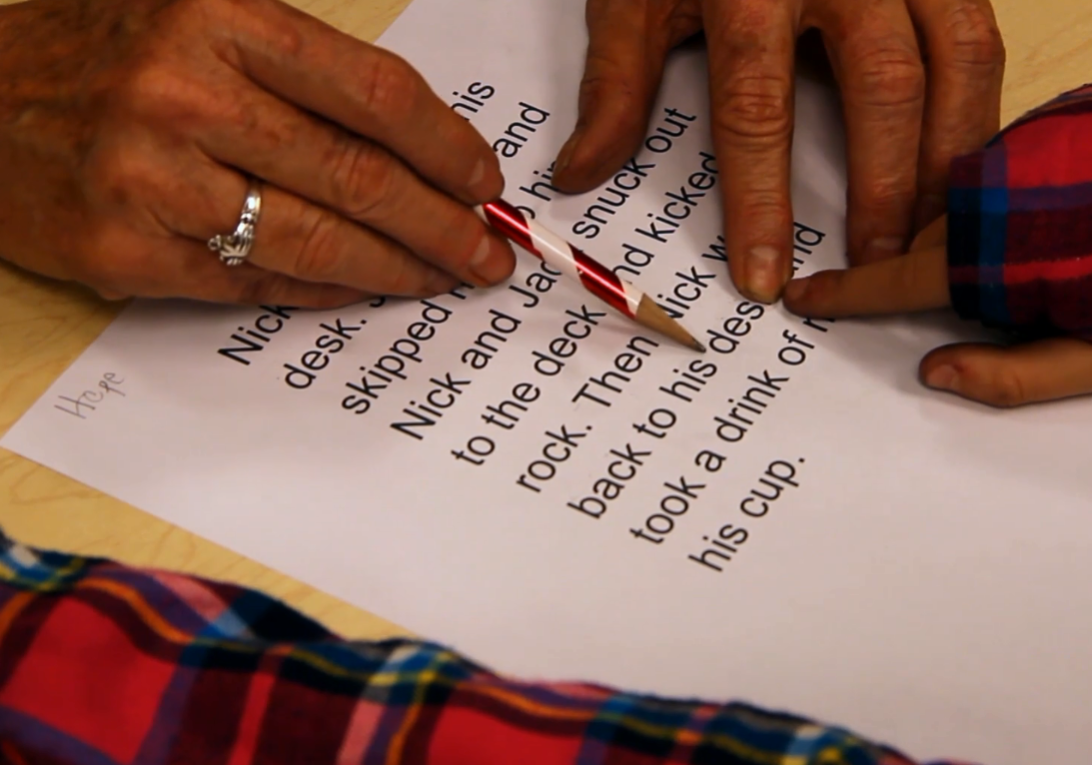 Hope
Nick his
desk. and
skipped
Nick and Jac snuck out
to the deck and kicked
rock. Then Nick
back to his desk and
took a drink of
his cup.